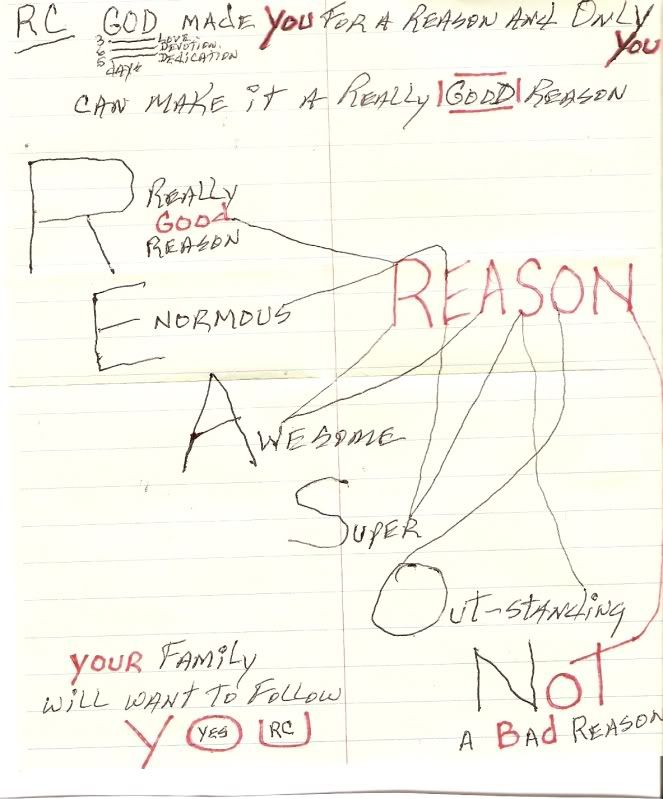 RC GOD MADE YOU FOR A REASON AND ONLY YOU
3 LOVE
6 DEVOTION
5 DEDICATION
DAYS
CAN MAKE iT A REALLY GOOD REASON
R REALLY
GOOD
REASON
ENORMOUS
REASON
AWESOME
SUPER
OUT-STANDING
YOUR FAMiLY
WiLL WANT TO FOLLOW
YOU YES RC
NOT
A BAd REASON